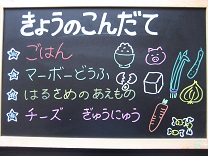 きょうのこんだて
ごはん
マーボーどうふ
はるさめのあえもの
チーズ ぎゅうにゅう